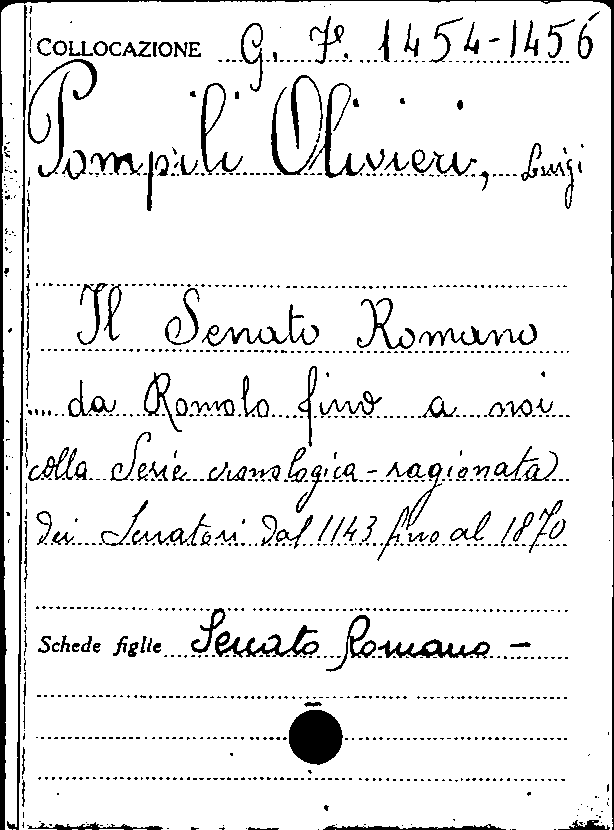 COLLOCAZIONE G. F. 1454-1456
Pompili Olivieri, Luigi
Il Senato Romano
da Romolo fino a noi
colla Serie cronologica-ragionata
dei Senatori dal 1143 fino al 1870
Schede figlie Senato Romano -